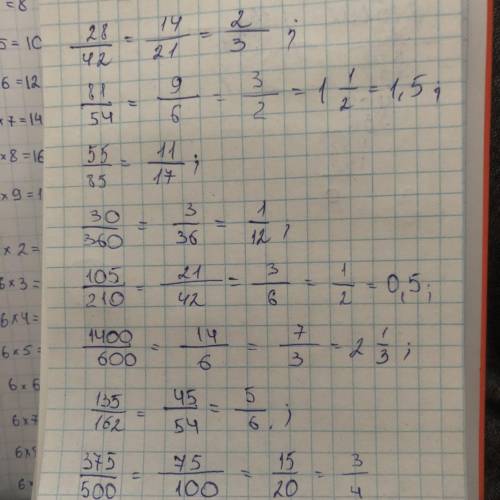 = 8
5 = 10
6 = 12
× 7 = 14
× 8 = 16
× 9 = 1
× 2 =
6 × 3 =
6 × 4 =
6 × 5 =
6 × 6
6 × 7
6 ×
28/42 = 14/21 = 2/3 ;
81/54 = 9/6 = 3/2 = 1 1/2 = 1,5 ;
55/85 = 11/17 ;
30/360 = 3/36 = 1/12 ;
105/210 = 21/42 = 3/6 = 1/2 = 0,5 ;
1400/600 = 14/6 = 7/3 = 2 1/3 ;
135/162 = 45/54 = 5/6 . ;
375/500 = 75/100 = 15/20 = 3/4